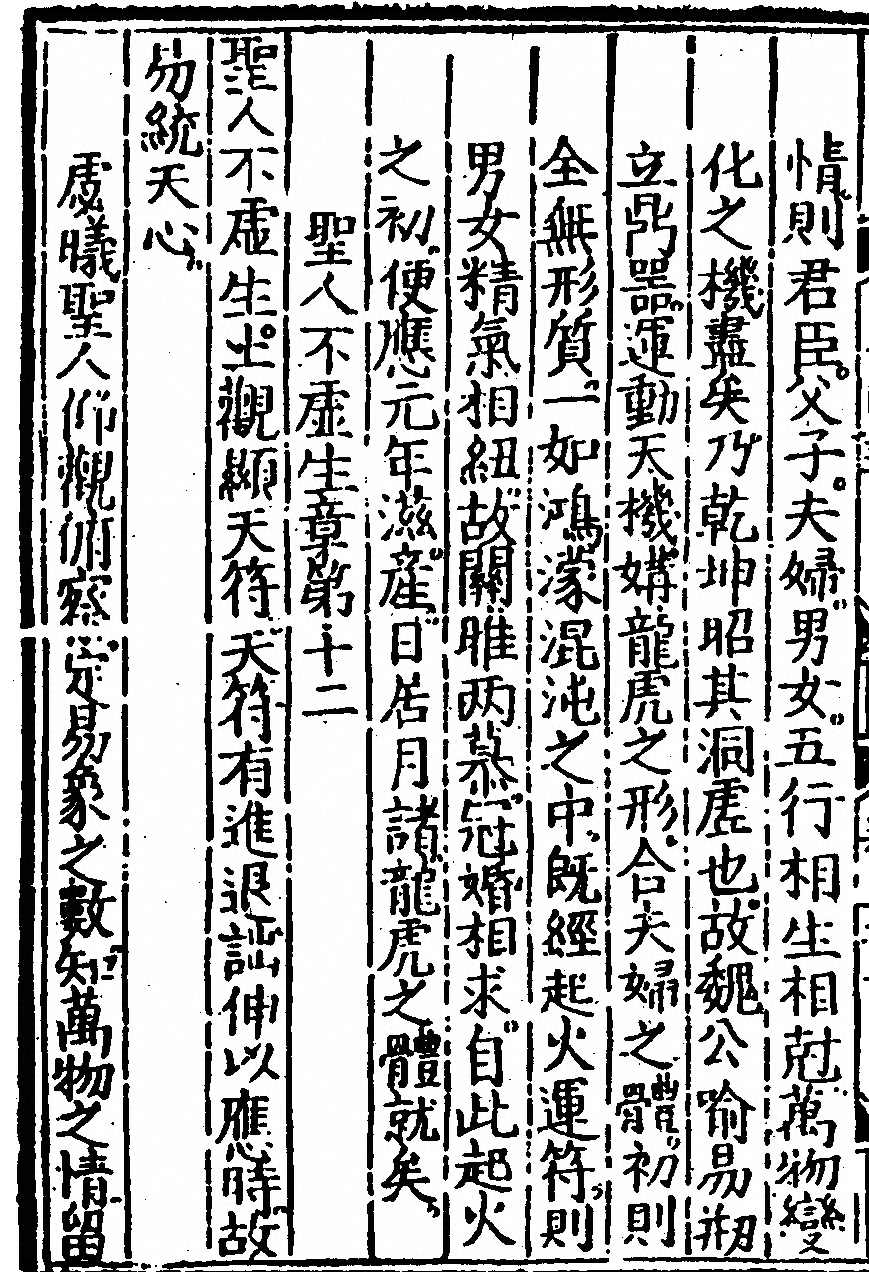 情則君臣父子夫婦男女五行相生相尅萬物變
化之機盡矣乃乾坤昭其洞虗也故魏公喻易剏
立鼎器運動天機媾龍虎之形合夫婦之體初則
全無形質一如鴻濛混沌之中既經起火運符則
男女精氣相紐故關雎两慕冠婚相求自此起火
之初便應元年滋産日居月諸龍虎之體就矣
聖人不虗生章第十二
聖人不虗生上觀顯天符天符有進退詘伸以應時故
易統天心
虙曦聖人仰觀俯察定易象之數知萬物之情留